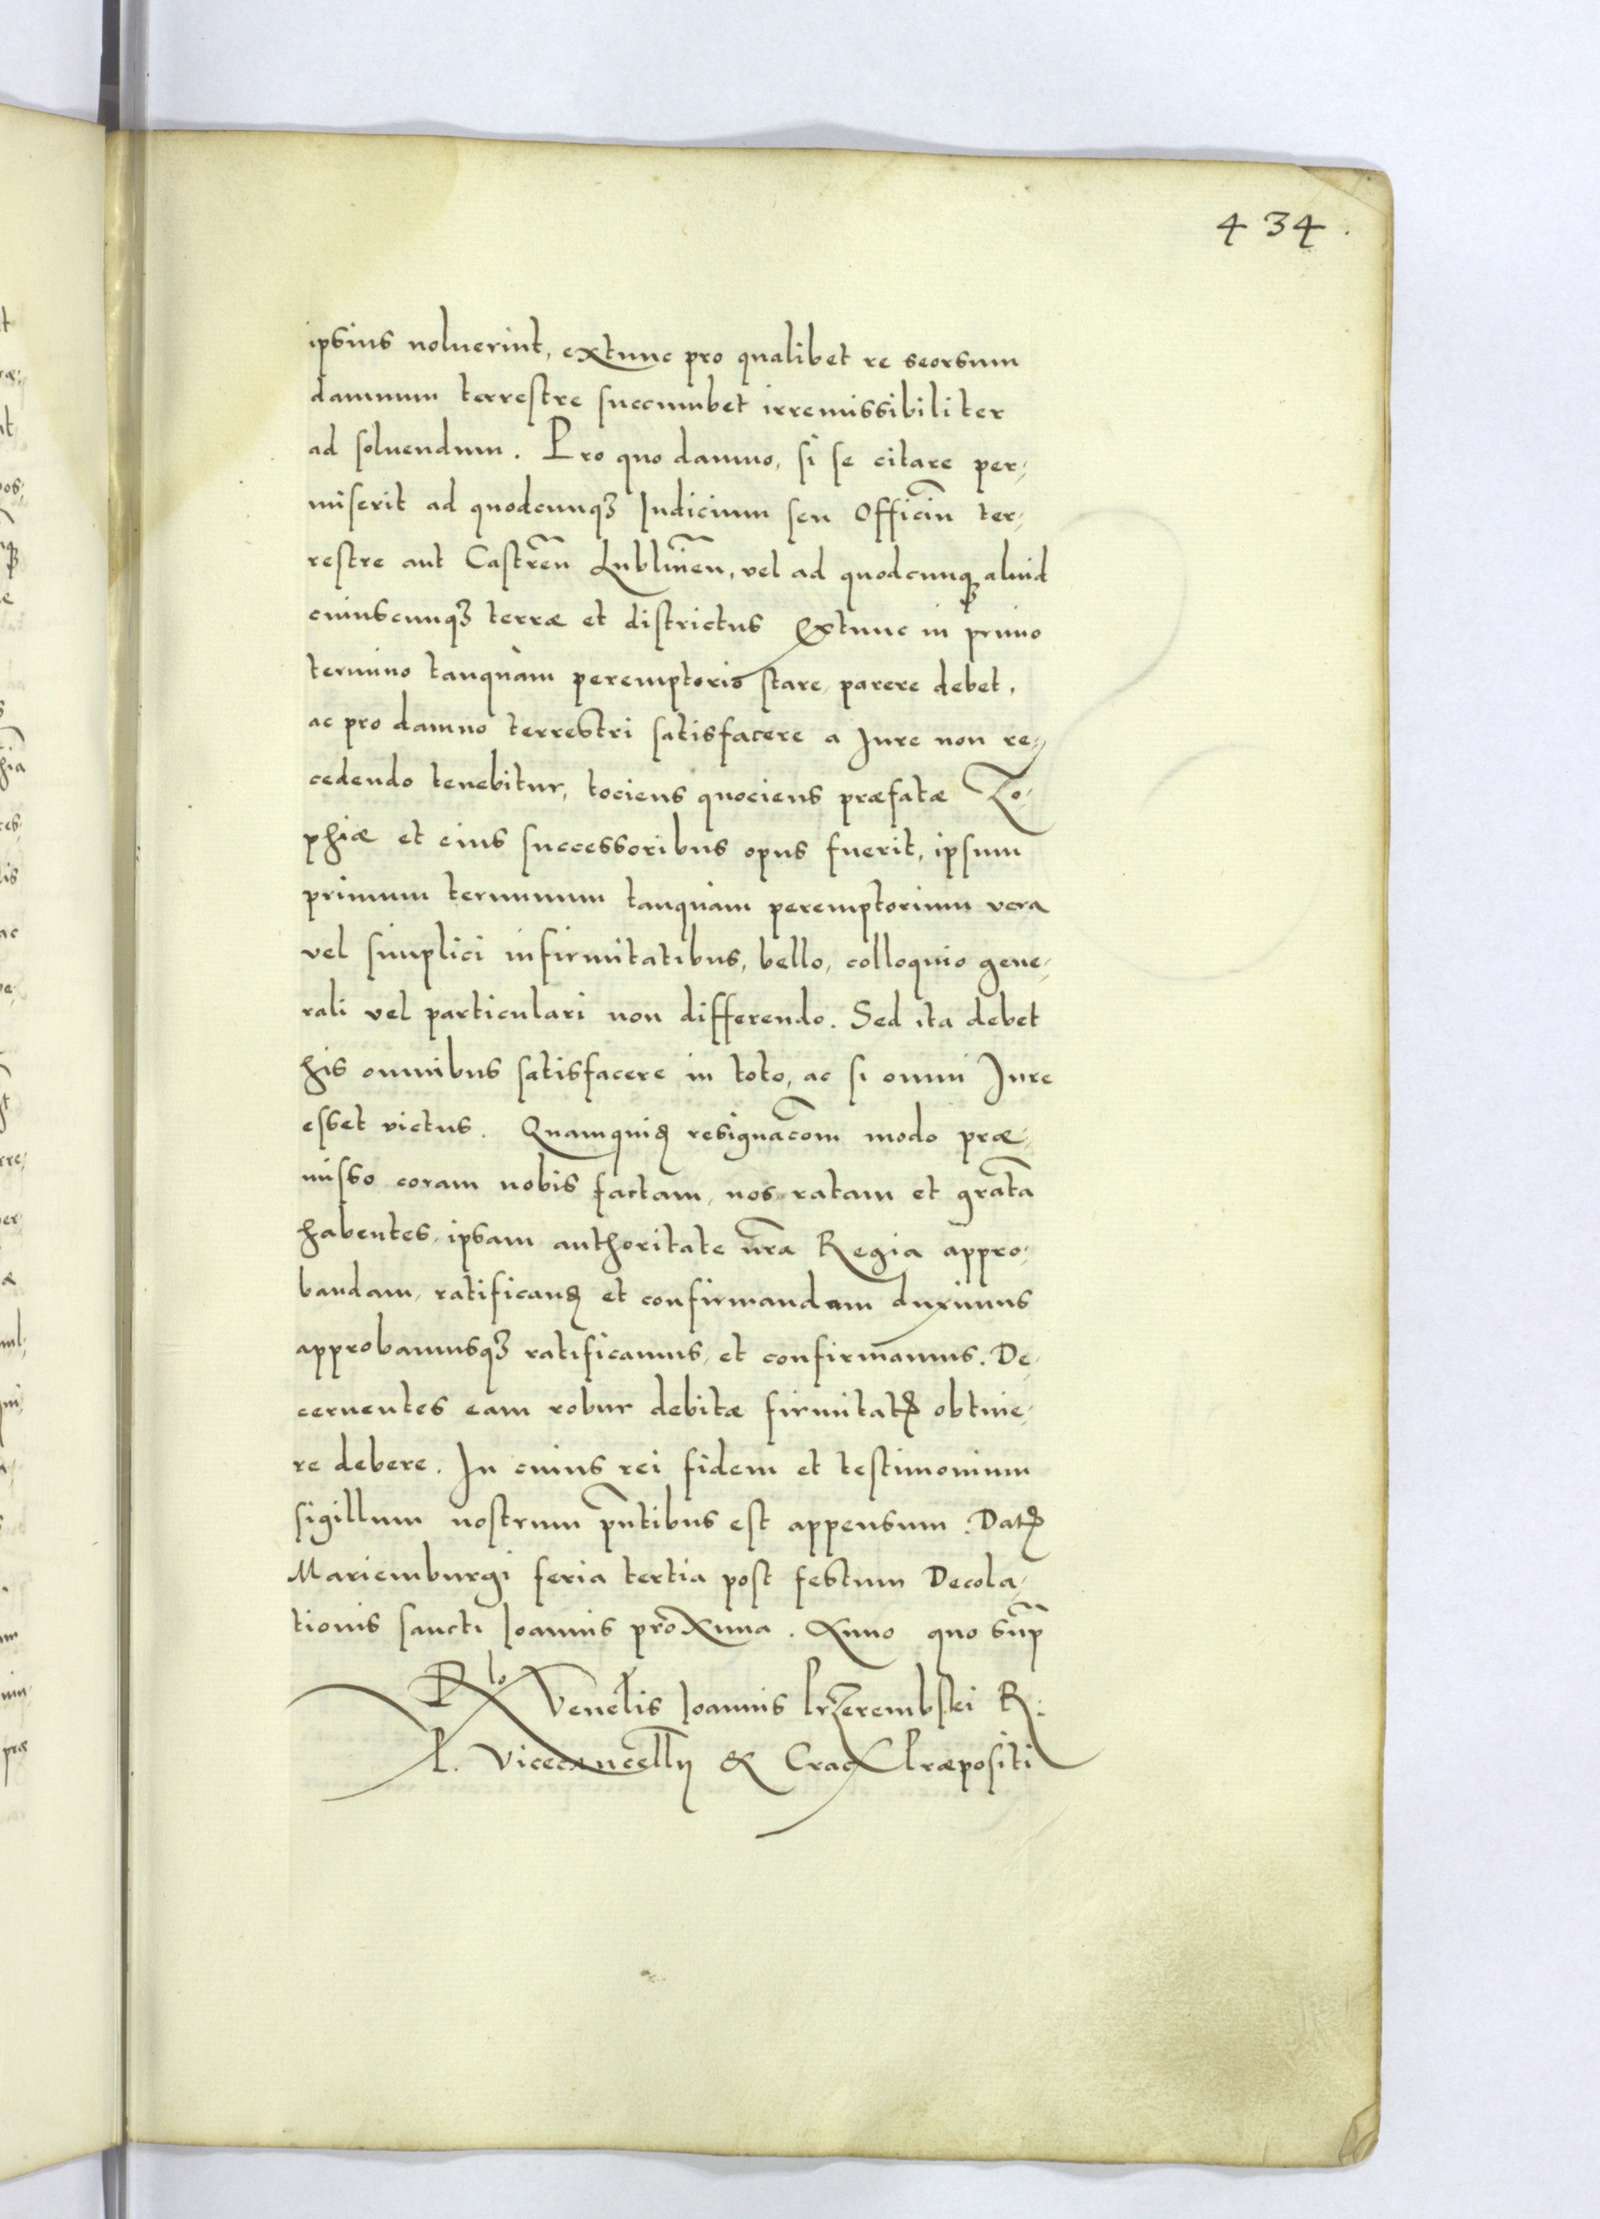 434.
ipsius noluerint, extunc pro qualibet re seorsum
damnum terrestre succumbet irremissibiliter
ad soluendum. Pro quo damno, si se citare per-
miserit ad quodcunqꝫ Iudicium seu Officiu͂ ter-
restre aut Castre͂n Lubline͂n, vel ad quodcunqꝫ aliud
cuiuscunqꝫ terræ et districtus extunc in primo
termino tanquàm peremptorio stare, parere debet,
ac pro damno terrestri satisfacere a Iure non re-
cedendo tenebitur, tociens quociens præfatæ Zo-
phiæ et eius successoribus opus fuerit, ipsum
primum terminum tanquàm peremptorium vera
vel simplici infirmitatibus, bello, colloquio gene-
rali vel particulari non differendo. Sed ita debet
his omnibus satisfacere in toto, ac si omni Iure
esset victus. Quamquidꝫ resignac͂om modo præ-
misso coram nobis factam, nos ratam et grata͂
habentes, ipsam authoritate n͂ra Regia appro-
bandam, ratificandꝫ et confirmandam duximus
approbamusqꝫ ratificamus, et confirmamus. De-
cernentes eam robur debitæ firmitatꝭ obtine-
re debere. In cuius rei fidem et testimonium
sigillum nostrum p͂ntibus est appensum. Datꝭ
Mariemburgi feria tertia post festum Decola-
tionis sancti Ioannis proxima. Anno quo sup͂
Rlo Venelis Ioannis Przerembskei R.
P. Vicecancellij & Crac Præpositi